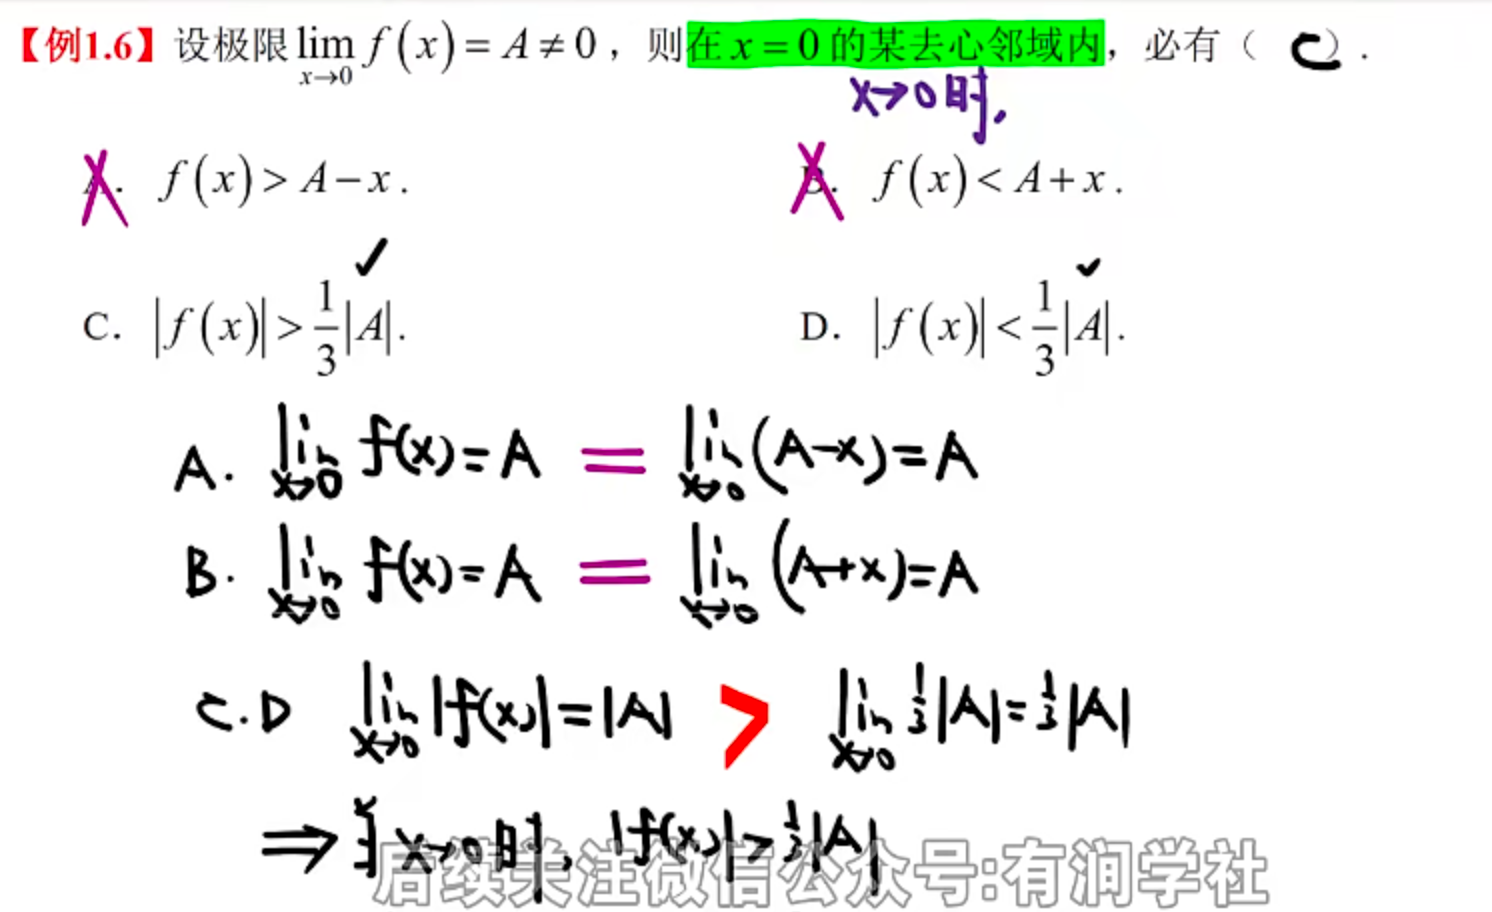 【例1.6】设极限 lim f(x) = A ≠ 0，则在 x = 0 的某去心邻域内，必有（ C ）.
x→0
x→0时,
A. f(x) > A − x. B. f(x) < A + x.
C. |f(x)| > 1/3 |A|. D. |f(x)| < 1/3 |A|.
A. lim x→0 f(x) = A = lim x→0 (A−x) = A
B. lim x→0 f(x) = A = lim x→0 (A+x) = A
C.D lim x→0 |f(x)| = |A| > lim x→0 1/3 |A| = 1/3 |A|
⇒ 当 x→0时, |f(x)| > 1/3 |A|
后续关注微信公众号:有润学社